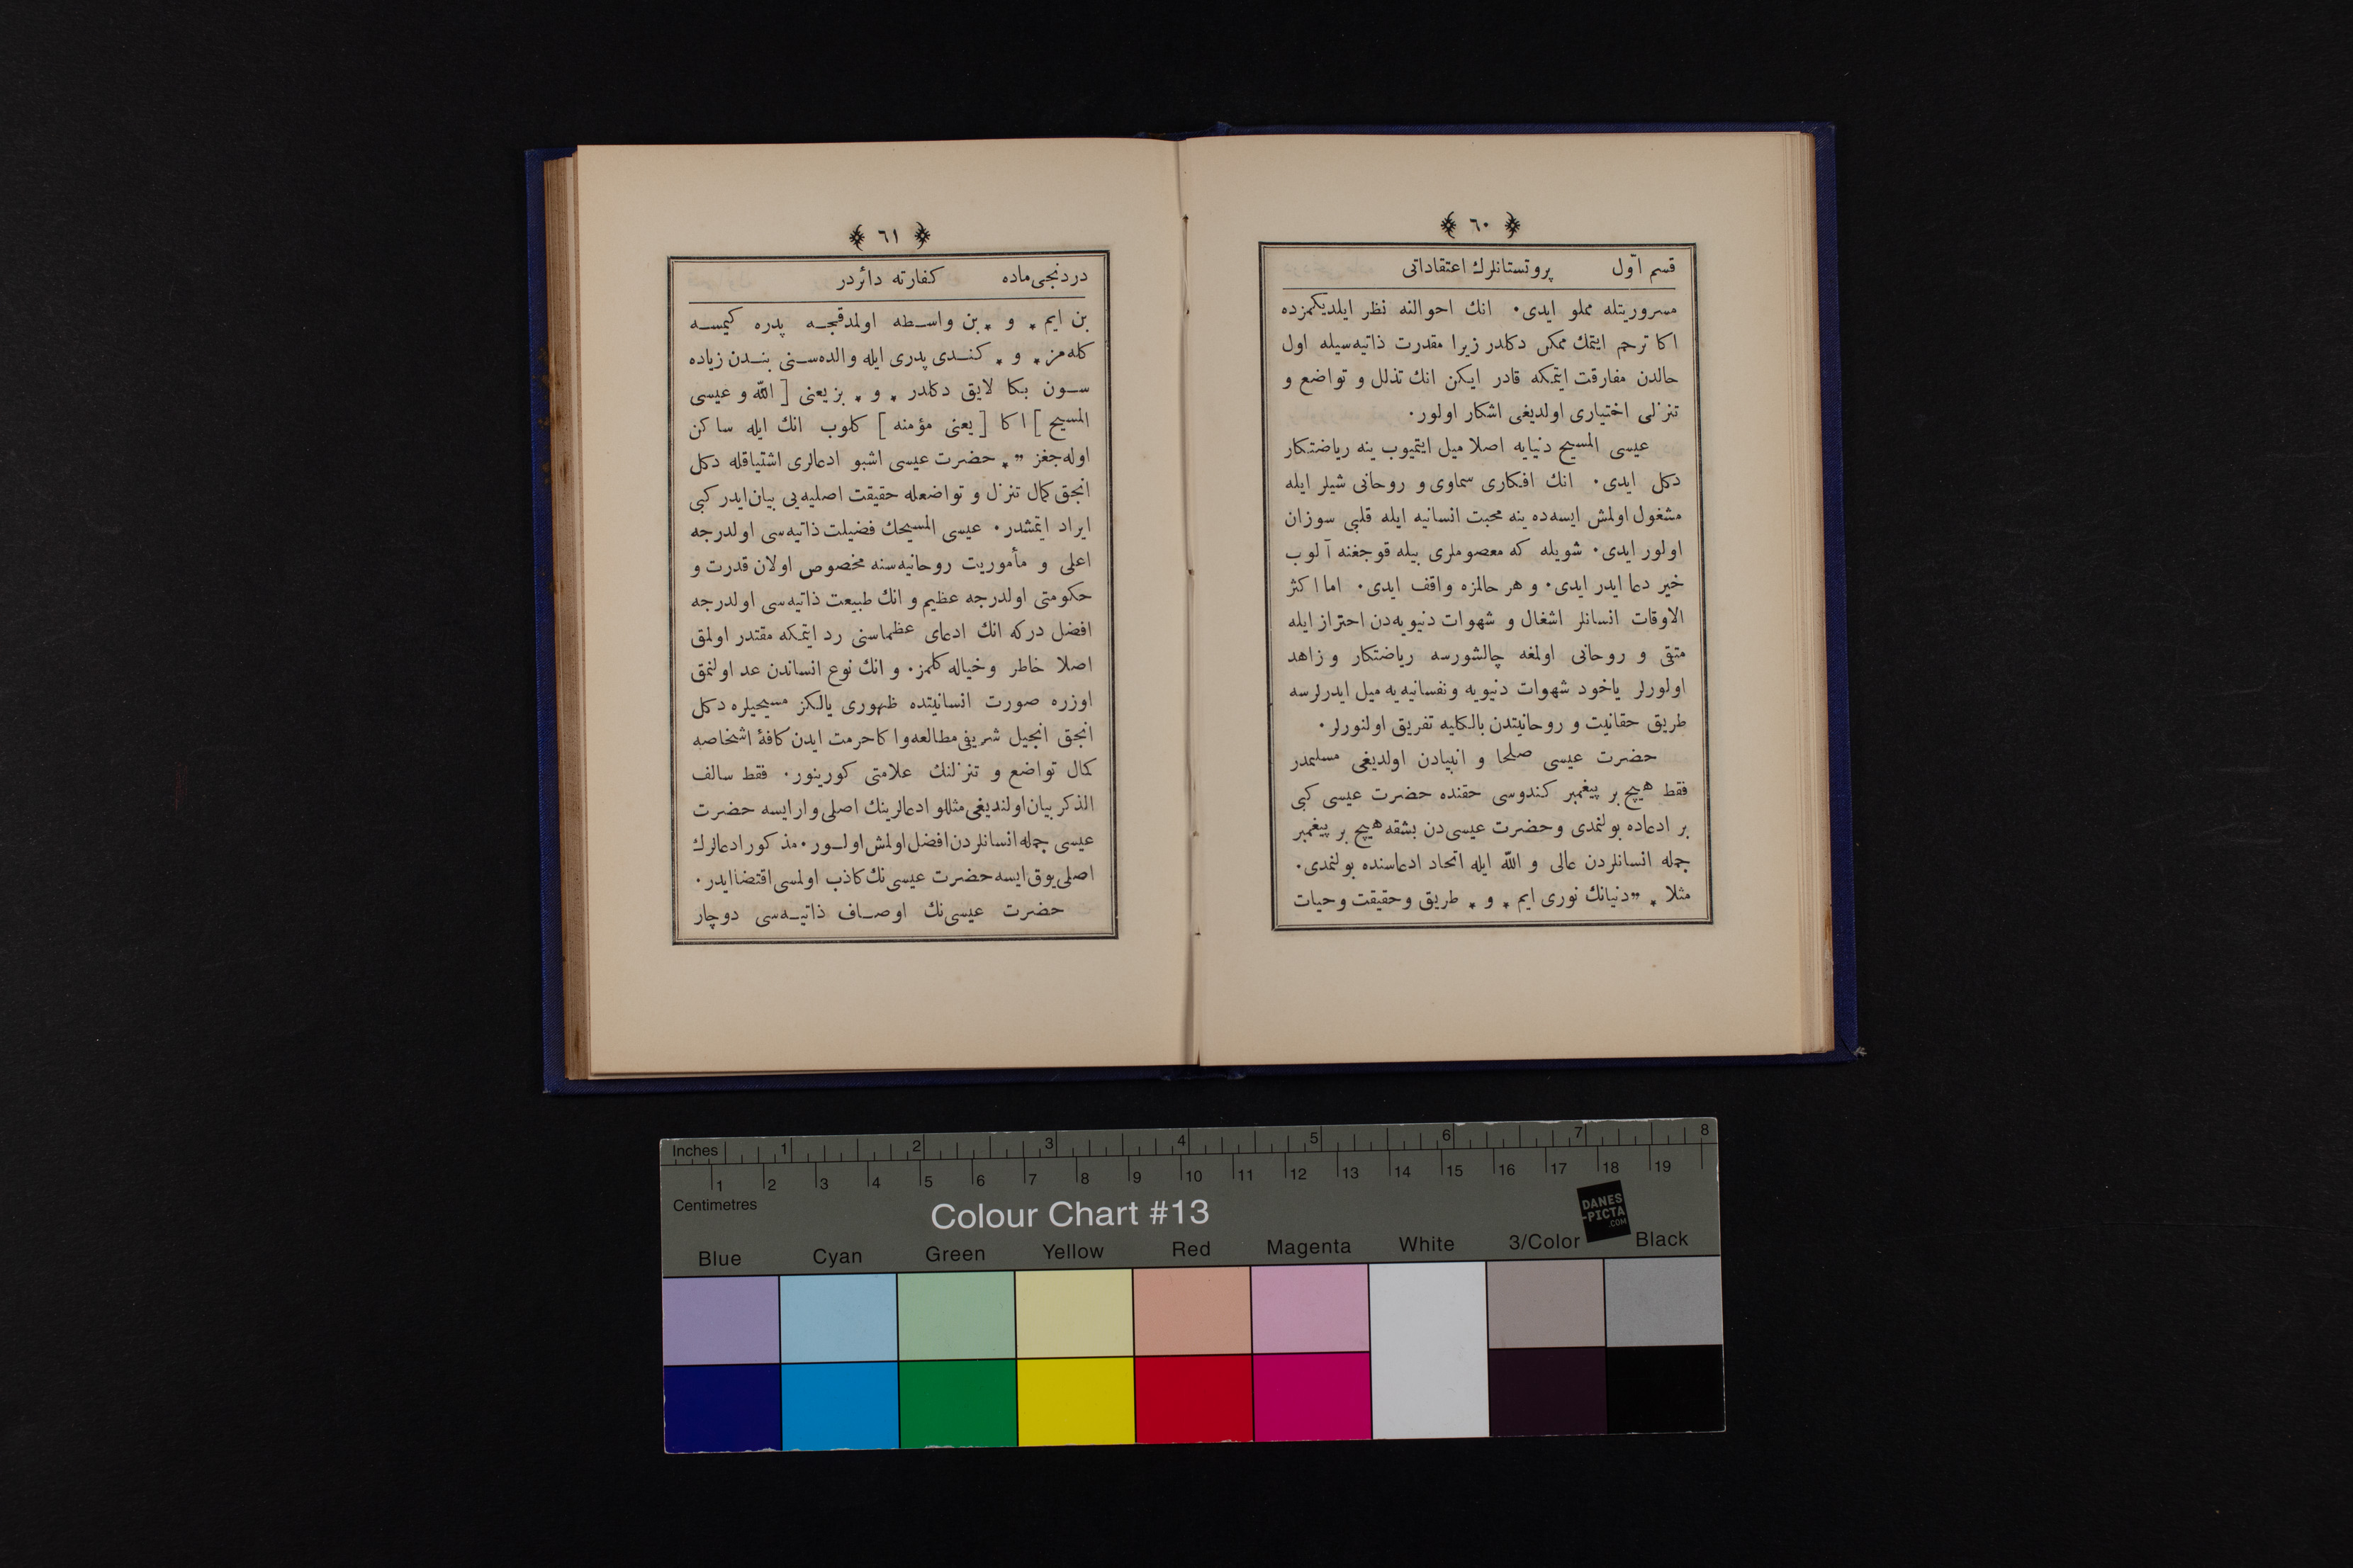 ﴿ ٦٠ ﴾
قسم اوّل پروتستانلرك اعتقاداتی
مسروریتله مملو ایدی۰ انك احوالنه نظر ایلدیكمزده
اكا ترحم ایتمك ممكن دكلدر زیرا مقدرت ذاتیه‌سیله اول
حالدن مفارقت ایتمكه قادر ایكن انك تذلل و تواضع و
تنزلی اختیاری اولدیغی اشكار اولور۰
عیسی المسیح دنیایه اصلا میل ایتمیوب ینه ریاضتكار
دكل ایدی۰ انك افكاری سماوی و روحانی شیلر ایله
مشغول اولمش ایسه‌ده ینه محبت انسانیه ایله قلبی سوزان
اولور ایدی۰ شویله كه معصوملری بیله قوجغنه آلوب
خیر دعا ایدر ایدی۰ و هر حالمزه واقف ایدی۰ اما اكثر
الاوقات انسانلر اشغال و شهوات دنیویه‌دن احتراز ایله
متقی و روحانی اولمغه چالشورسه ریاضتكار و زاهد
اولورلر یاخود شهوات دنیویه ونفسانیه‌یه میل ایدرلرسه
طریق حقانیت و روحانیتدن بالكلیه تفریق اولنورلر۰
حضرت عیسی صلحا و انبیادن اولدیغی مسلمدر
فقط هیچ بر پیغمبر كندوسی حقنده حضرت عیسی كبی
بر ادعاده بولنمدی وحضرت عیسی‌دن بشقه هیچ بر پیغمبر
جمله انسانلردن عالی و الله ایله اتحاد ادعاسنده بولنمدی۰
مثلا ٭ „دنیانك نوری ایم ٭ و ٭ طریق وحقیقت وحیات
﴿ ٦١ ﴾
دردنجی ماده كفارته دائردر
بن ایم ٭ و ٭ بن واسطه اولمدقجه پدره كیمسه
كله‌مز ٭ و ٭ كندی پدری ایله والده‌سنی بندن زیاده
سون بكا لایق دكلدر ٭ و ٭ بز یعنی [ الله و عیسی
المسیح ] اكا [ یعنی مؤمنه ] كلوب انك ایله ساكن
اوله‌جغز „ ٭ حضرت عیسی اشبو ادعالری اشتیاقله دكل
انجق كمال تنزل و تواضعله حقیقت اصلیه‌یی بیان ایدر كبی
ایراد ایتمشدر۰ عیسی المسیحك فضیلت ذاتیه‌سی اولدرجه
اعلی و مأموریت روحانیه‌سنه مخصوص اولان قدرت و
حكومتی اولدرجه عظیم و انك طبیعت ذاتیه‌سی اولدرجه
افضل دركه انك ادعای عظماسنی رد ایتمكه مقتدر اولمق
اصلا خاطر وخیاله كلمز۰ و انك نوع انساندن عد اولنمق
اوزره صورت انسانیتده ظهوری یالكز مسیحیلره دكل
انجق انجیل شریفی مطالعه‌و اكا حرمت ایدن كافهٔ اشخاصه
كمال تواضع و تنزلنك علامتی كورینور۰ فقط سالف
الذكر بیان اولندیغی مثللو ادعالرینك اصلی وار ایسه حضرت
عیسی جمله انسانلردن افضل اولمش اولور۰ مذكور ادعالرك
اصلی یوق ایسه حضرت عیسی‌نك كاذب اولمسی اقتضا ایدر۰
حضرت عیسی‌نك اوصاف ذاتیه‌سی دوچار
Inches 1 2 3 4 5 6 7 8
1 2 3 4 5 6 7 8 9 10 11 12 13 14 15 16 17 18 19
Centimetres
Colour Chart #13
DANES
-PICTA
.COM
Blue Cyan Green Yellow Red Magenta White 3/Color Black